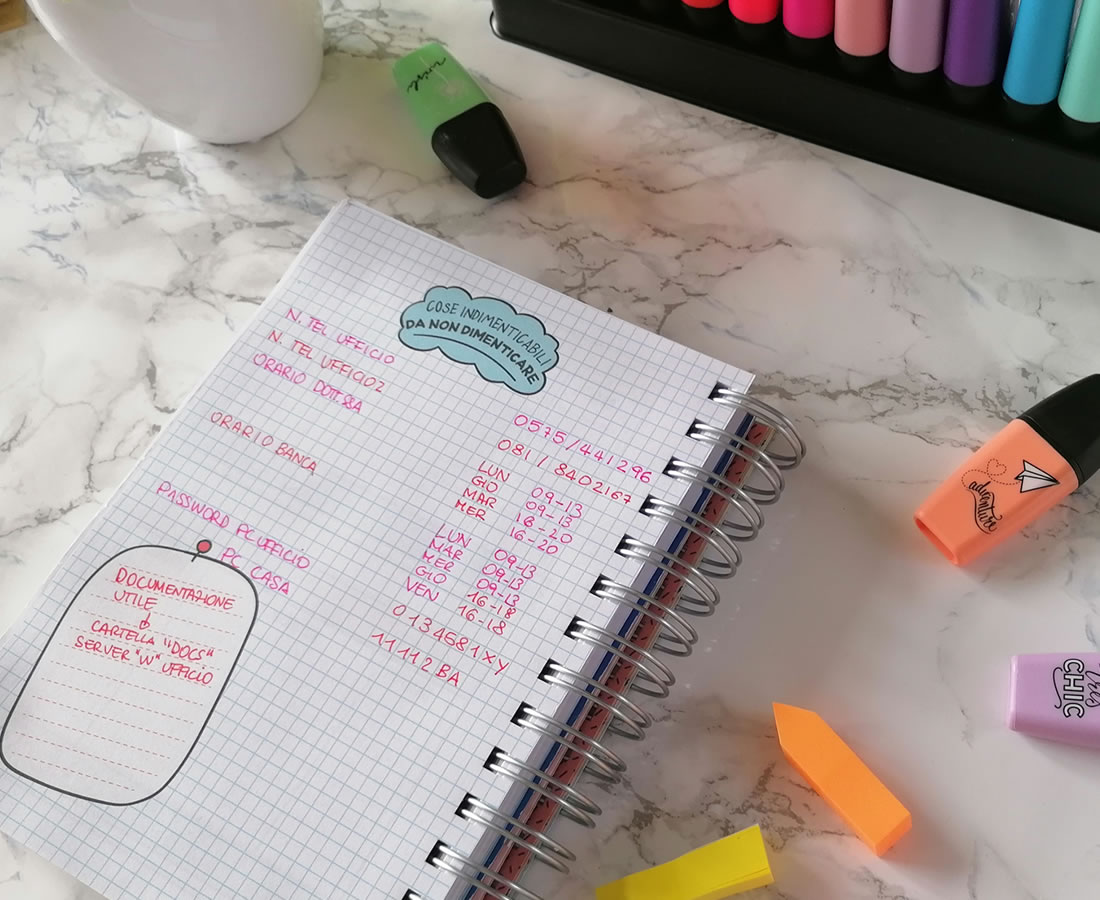 COSE INDIMENTICABILI
DA NON DIMENTICARE
N. TEL UFFICIO 0575/441296
N. TEL UFFICIO2 081 / 8402167
ORARIO DOTT.SSA LUN 09-13
GIO 09-13
MAR 16-20
MER 16-20
ORARIO BANCA LUN 09-13
MAR 09-13
MER 09-13
GIO 16-18
VEN 16-18
PASSWORD PC UFFICIO 0134581XY
PC CASA 11112BA
DOCUMENTAZIONE
UTILE
CARTELLA "DOCS"
SERVER "W" UFFICIO
adventure
Très
CHIC